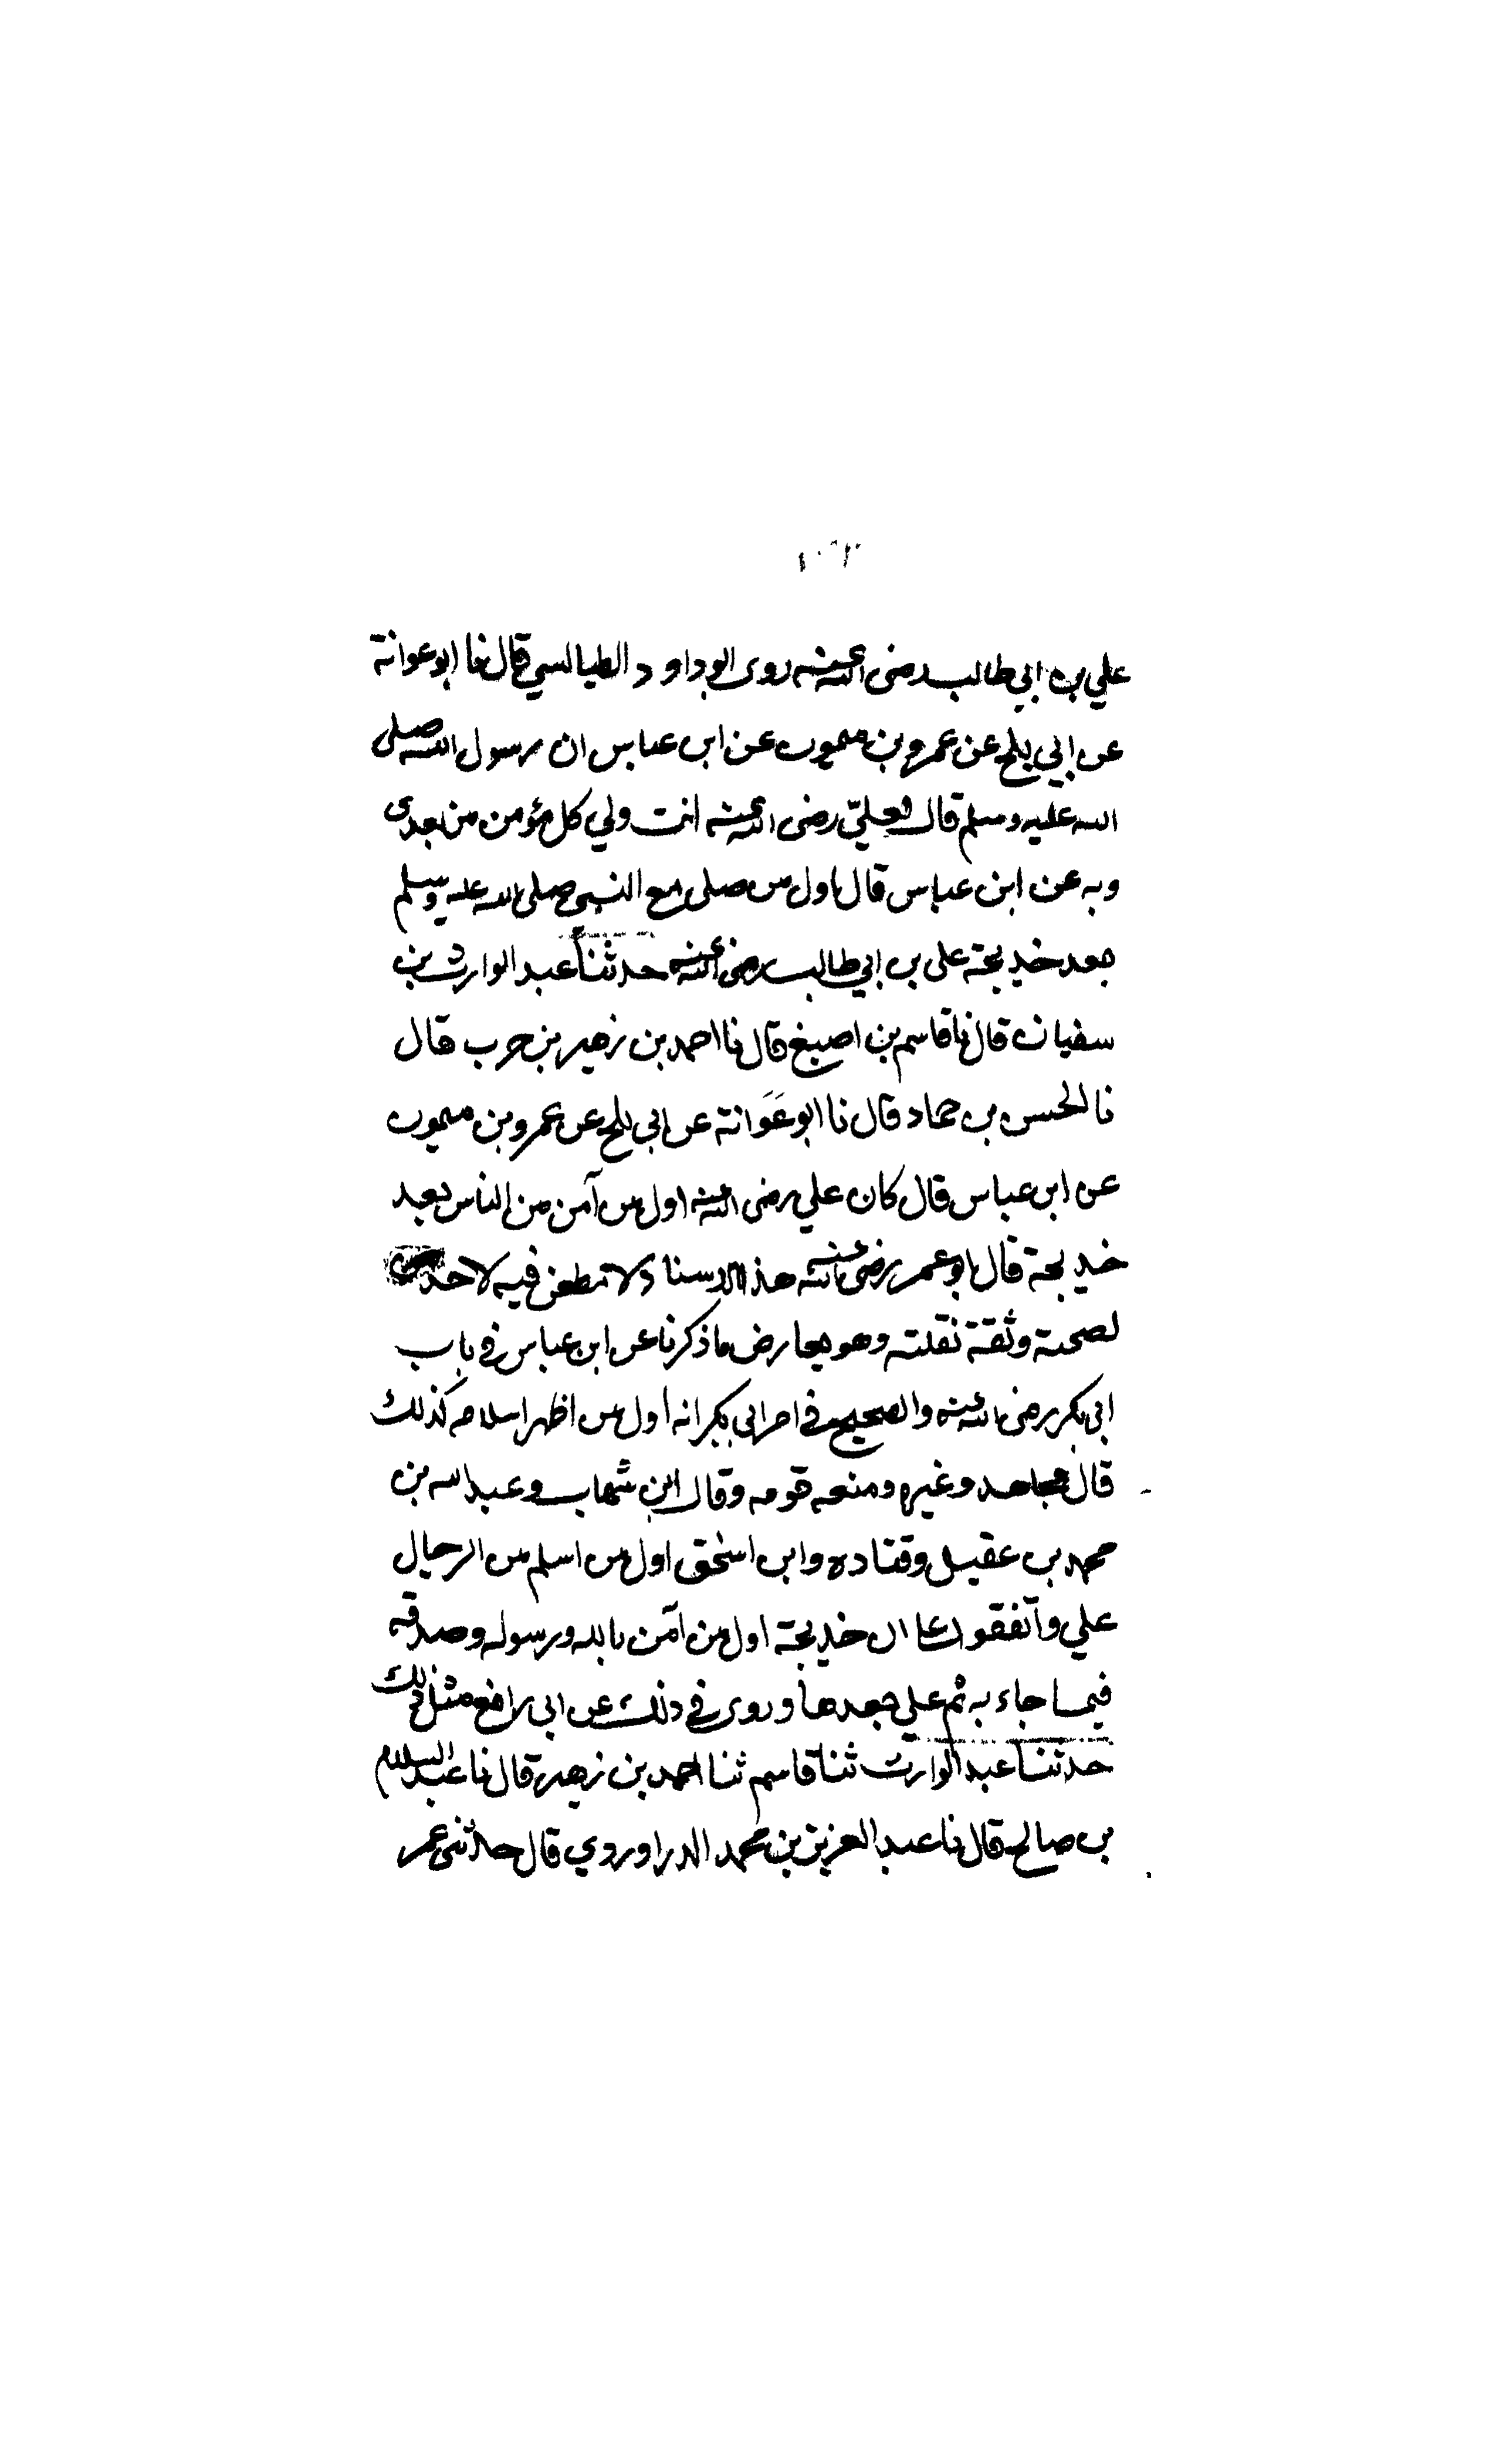 علي بن ابي طالب رضى الله عنه روى ابو داود الطيالسي قال نا ابو عوانة
عن ابي بلج عن عمرو بن ميمون عن ابن عباس ان رسول الله صلى
الله عليه وسلم قال لعليّ رضى الله عنه انت ولي كل مؤمن من بعدى
وبه عن ابن عباس قال اول من صلى مع النبي صلى الله عليه وسلم
بعد خديجة على بن ابي طالب رضى الله عنه حدثنا عبد الوارث بن
سفيان قال نا قاسم بن اصبغ قال نا احمد بن زهير بن حرب قال
نا الحسن بن حماد قال نا ابو عَوَانة عن ابي بلج عن عمرو بن ميمون
عن ابن عباس قال كان علي رضى الله عنه اول من آمن من الناس بعد
خديجة قال ابو عمر رضى الله عنه هذا الاسناد لا مطعن فيه لاحد
لصحته وثقة نقلته وهو يعارض ما ذكرنا عن ابن عباس فى باب
ابي بكر رضى الله عنه والصحيح في امر ابي بكر انه اول من اظهر اسلامه كذلك
قال مجاهد وغيره ومنعه قومه وقال ابن شهاب وعبد الله بن
محمد بن عقيل وقتاده وابن اسحق اول من اسلم من الرجال
علي واتفقوا على ان خديجة اول من آمن بالله ورسوله وصدقه
فيما جاء به ثم علي بعدها وروى في ذلك عن ابى رافع مثل ذلك
حدثنا عبد الوارث ثنا قاسم ثنا احمد بن زهير قال نا عبد السلام
بن صالح قال نا عبد العزيز بن محمد الدراوردي قال حدثنى عمر